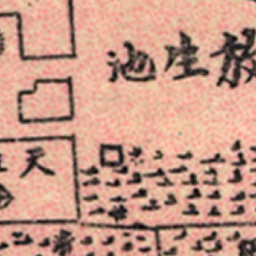 放生池
天